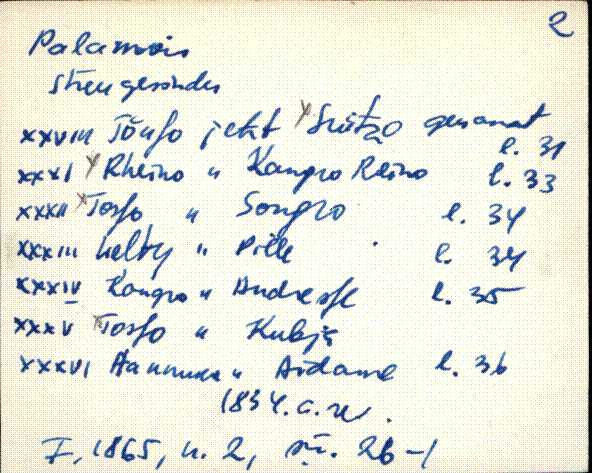 2
Palamois
Streugesinder
XXVIII Tõnso jetzt genannt l. 31
XXXI Rheino " Kangro Reino l. 33
XXXII Tosso " Songro l. 34
XXXIII Welby " Pille l. 34
XXXIV Kangro " l. 35
XXXV Tosso " Kubja
XXXVI Hannuka " Aidame l. 36
1834. a. rev.
F. 1865, n. 2, sü. 26-1